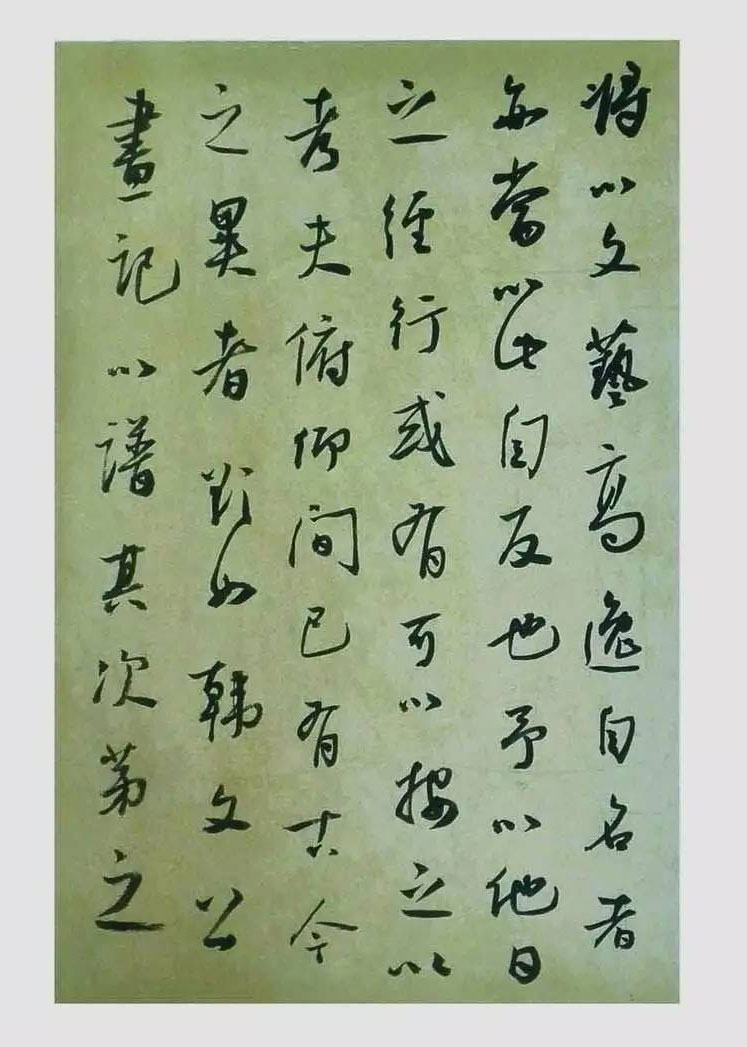 將以文藝高逸自名者
亦當以此自反也予以他日
之經行或有可以按之以
考夫俯仰間已有古今
之異者欤如韓文公
畫記以譜其次第之